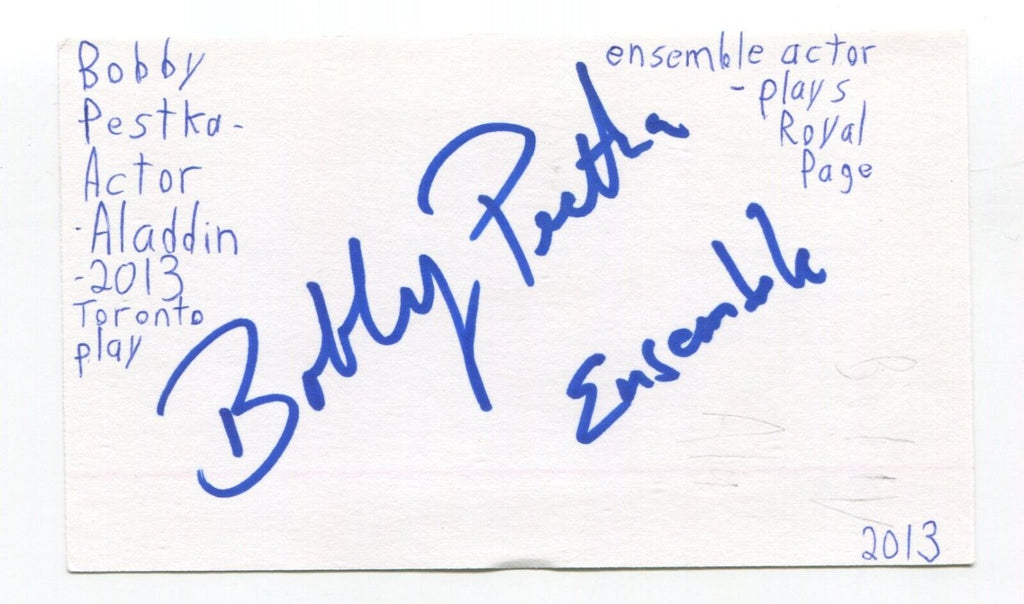 Bobby
Pestka-
Actor
-Aladdin
-2013
Toronto
play
ensemble actor
-plays
Royal
Page
Bobby Pestka
Ensemble
2013